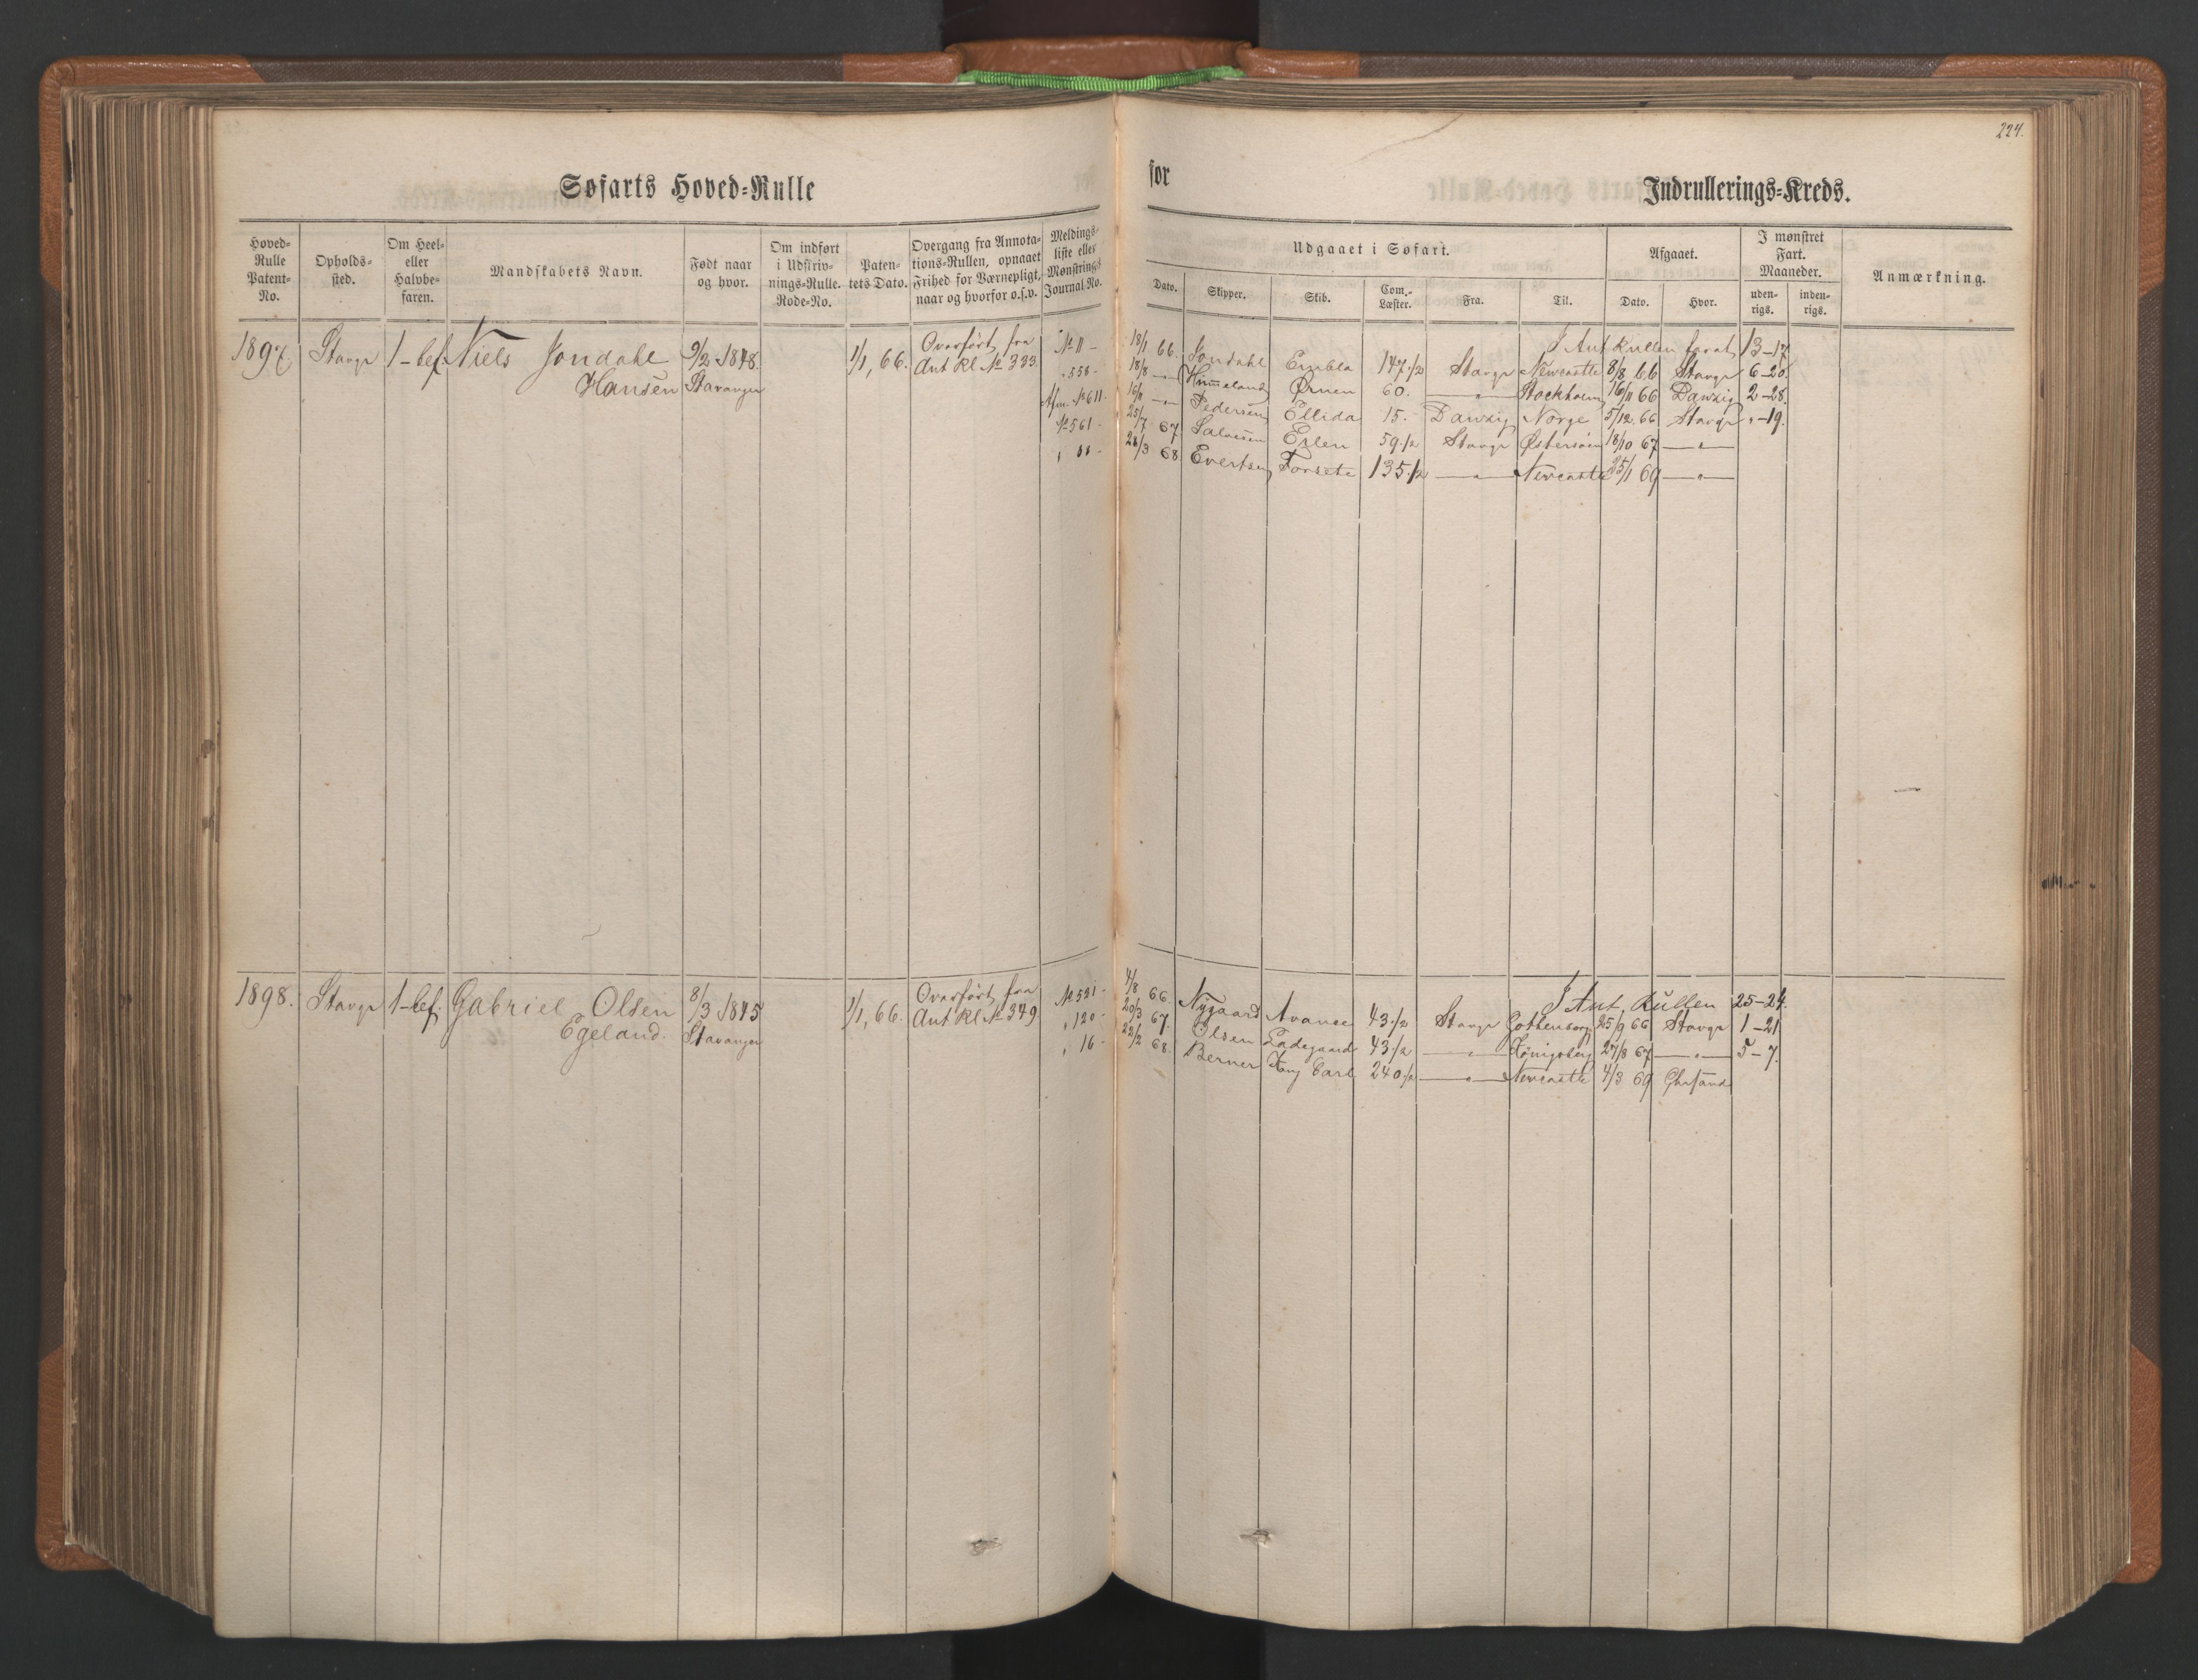 224.
Søfarts Hoved-Rulle
for
Indrullerings-Kreds.
Hoved-Rulle Patent-No.
Opholds-sted.
Om Heel- eller Halvbe-faren.
Mandskabets Navn.
Født naar og hvor.
Om indført i Udskriv-nings-Rulle. Rode-No.
Paten-tets Dato.
Overgang fra Annota-tions-Rullen, opnaaet Frihed for Værnepligt, naar og hvorfor o.s.v.
Meldings-liste eller Mønstrings Journal No.
Udgaaet i Søfart.
Dato. Skipper. Skib. Com.-Læster. Fra. Til.
Afgaaet.
Dato. Hvor.
I mønstret Fart. Maaneder.
uden-rigs. inden-rigs.
Anmærkning.
1897 Stavgr 1-bef. Niels Jondahl 9/2 1848. 1/1, 66. Overført fra
Hansen Stavanger Ant Rl. No 333.
I Ant Rullen faret 13-17
No 11 - 18/1 66. Jondahl Embla 147 1/2 Stavgr Newcastle 8/8 66 Stavgr 6-20.
" 558 - 18/8 — Himeland Ørnen 60. —"— Stockholm 16/11 66 Danzig 2-28.
Afm. No 611 16/11 —"— Pedersen Ellida 15. Danzig Norge 5/12 66 Stavgr "-19.
No 561 - 25/7 67 Salvesen Erlen 59 1/2 Stavgr Østersøen 18/10 67 —"—
" 88 - 28/3 68 Evertsen Forsete 135 1/2 —"— Newcastle 25/1 69 —"—
1898. Stavgr 1-bef. Gabriel Olsen 8/3 1845 1/1, 66. Overført fra
Egeland. Stavanger Ant Rl. No 349
I Ant, Rullen 25-24.
No 521 - 4/8 66. Nygaard Avance 43 1/2 Stavgr Gothenborg 25/9 66 Stavgr 1-21
" 120 - 20/3 67. Olsen Ladegaard 43 1/2 —"— Königsberg 27/8 67 —"— 5-7.
" 16 - 22/2 68. Berner Kong Carl 240 1/2 —"— Newcastle 4/3 69 Chrsand